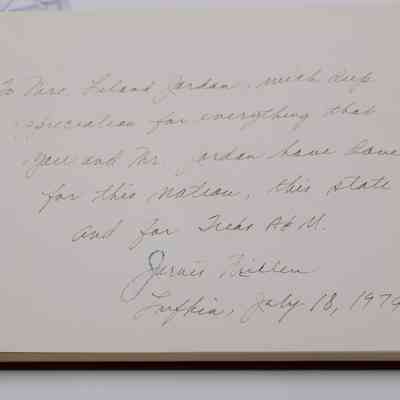 To Mrs. Leland Jordan, with deep
appreciation for everything that
you and Mr. Jordan have done
for this nation, this state
and for Texas A&M.
Jarvis Miller
Lufkin, July 18, 1979